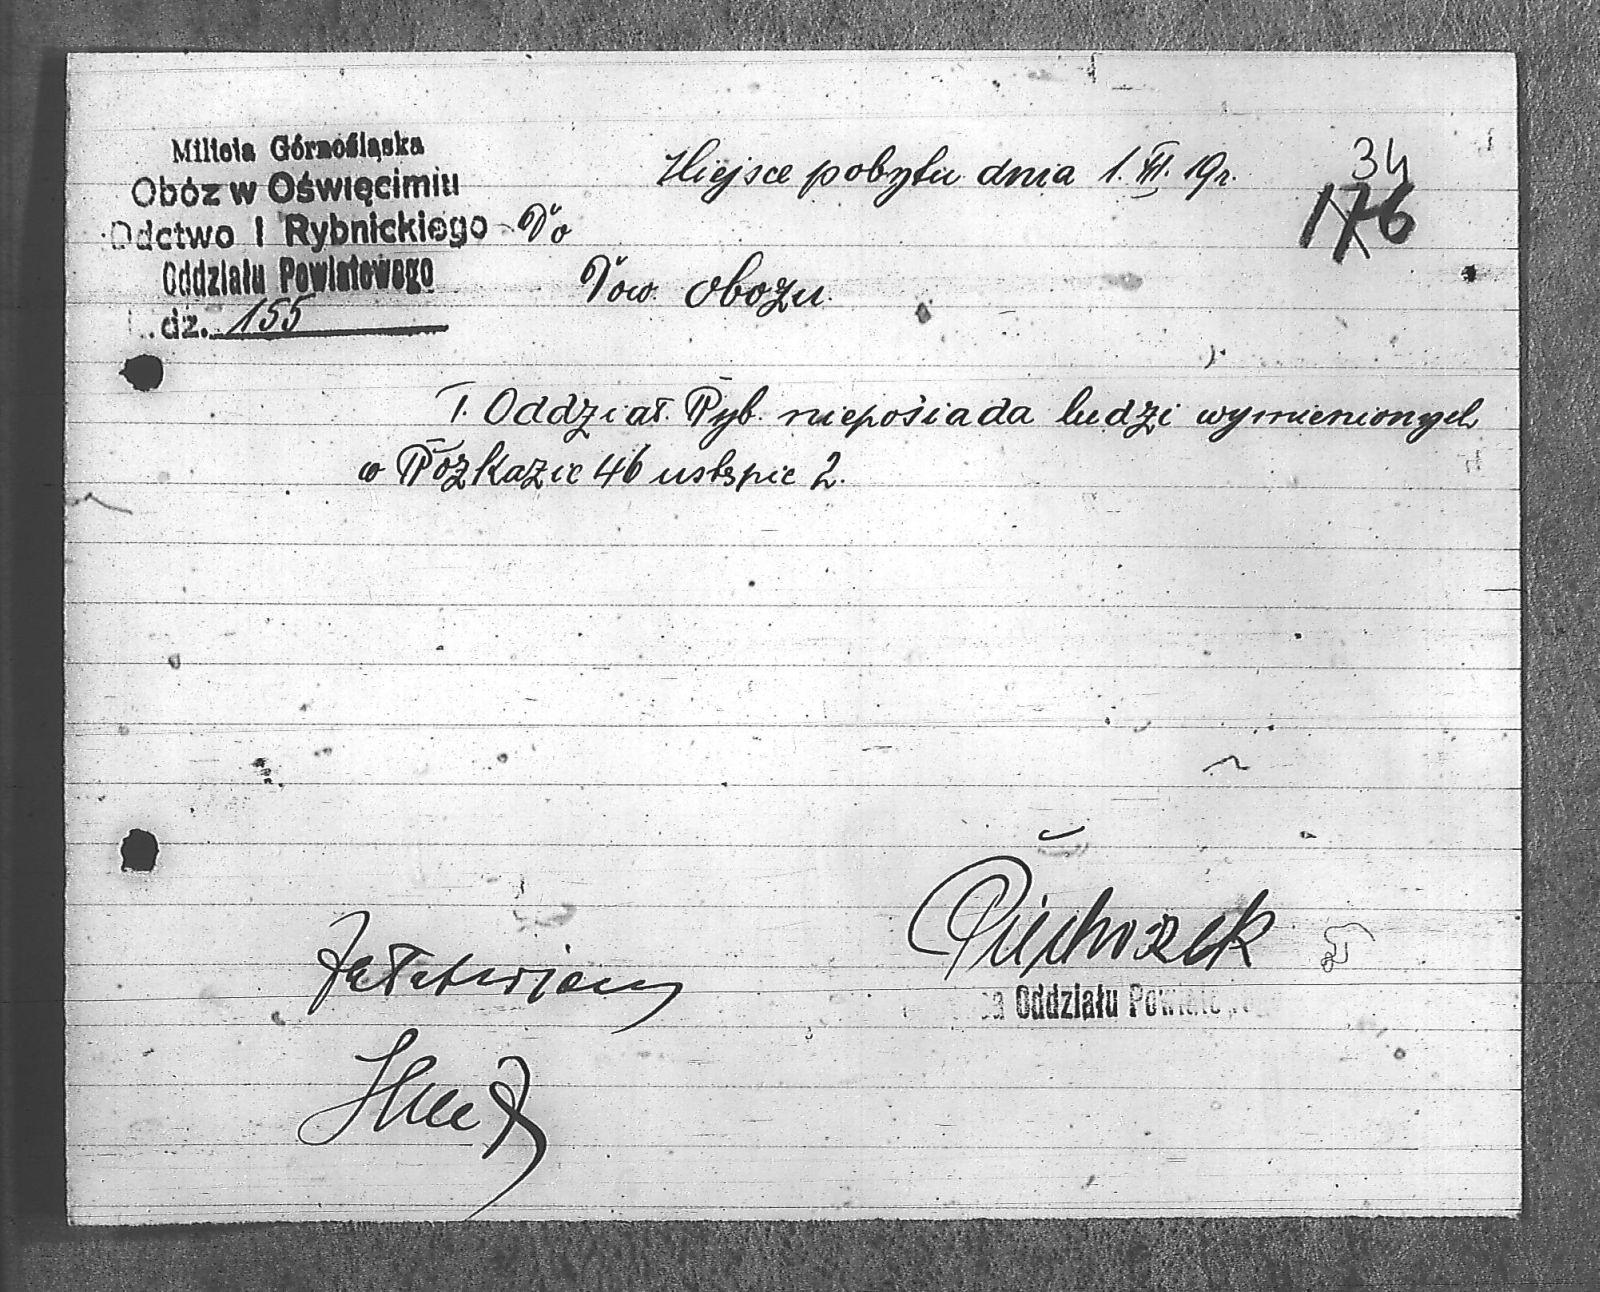 Milicja Górnośląska
Obóz w Oświęcimiu
Odctwo I Rybnickiego
Oddziału Powiatowego
L. dz. 155
Miejsce pobytu dnia 1. XII. 19r.
34
176
Do
Dow. obozu.
I. Oddział. Ryb. nieposiada ludzi wymienionych
w Rozkazie 46 ustępie 2.
Załatwiony
Piechoczek
Oddziału Powiatowego